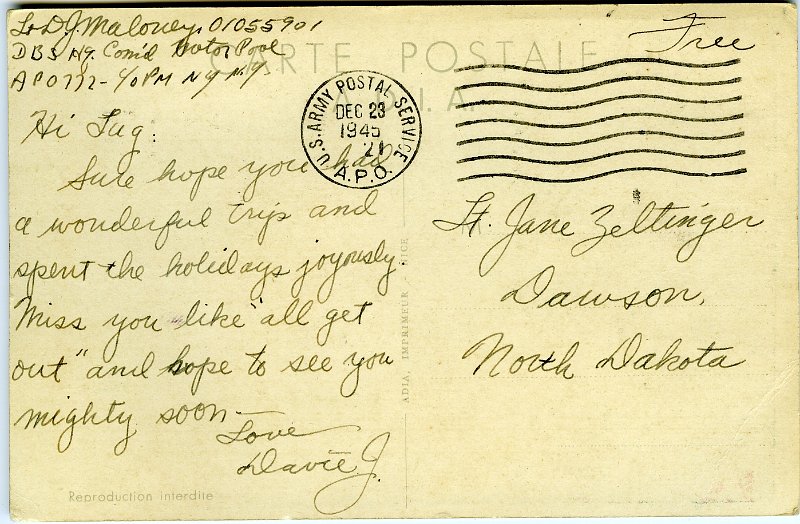 Lt. D.J. Maloney 01055901
DBS Hq. Com'd Motor Pool
APO 772 - c/o PM NY NY
CARTE POSTALE
Free
U.S. ARMY POSTAL SERVICE
DEC 23
1945
21
A.P.O.
Hi Tug:
Sure hope you had
a wonderful trip and
spent the holidays joyously.
Miss you like "all get
out" and hope to see you
mighty soon—
Love
Davie J.
Lt. Jane Zeltinger
Dawson,
North Dakota
ADIA, IMPRIMEUR, NICE
Reproduction interdite